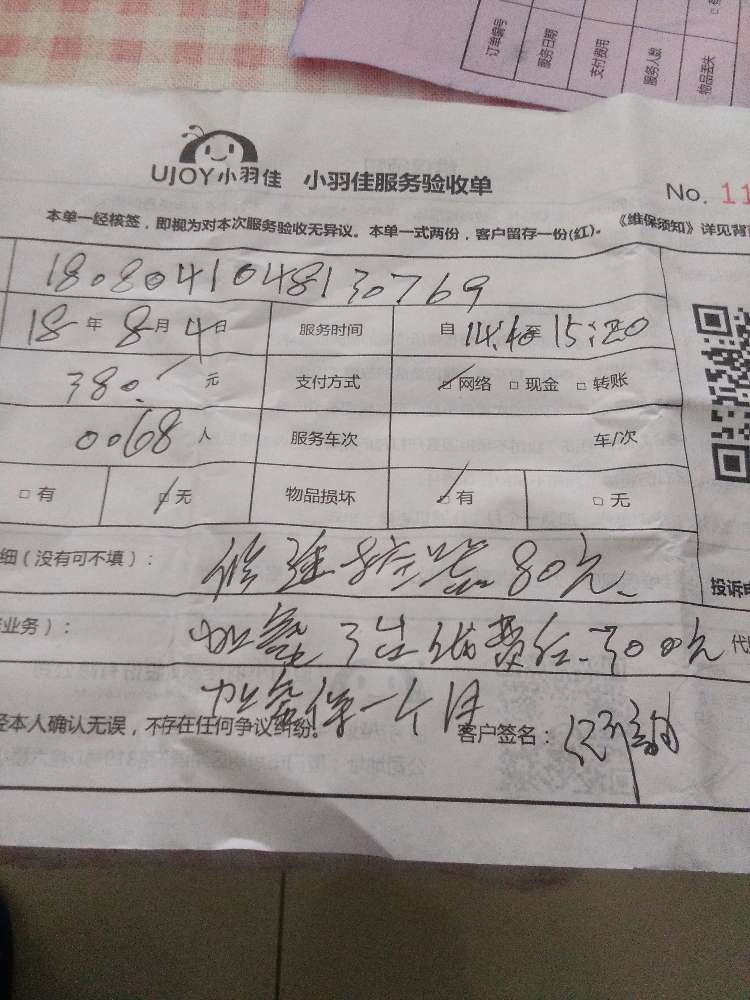 订单编号
服务日期
支付费用
服务人数
物品丢失
UJOY小羽佳 小羽佳服务验收单
No. 11
本单一经核签，即视为对本次服务验收无异议。本单一式两份，客户留存一份(红)。《维保须知》详见背
1808041048130769
18 年 8 月 4 日 服务时间 自 14:40 至 15:20
380. 元 支付方式 网络 现金 转账
0068 人 服务车次 车/次
有 无 物品损坏 有 无
细（没有可不填）： 80元
投诉
业务）： 加氟 300元
加氟保一个月
经本人确认无误，不存在任何争议纠纷。 客户签名：